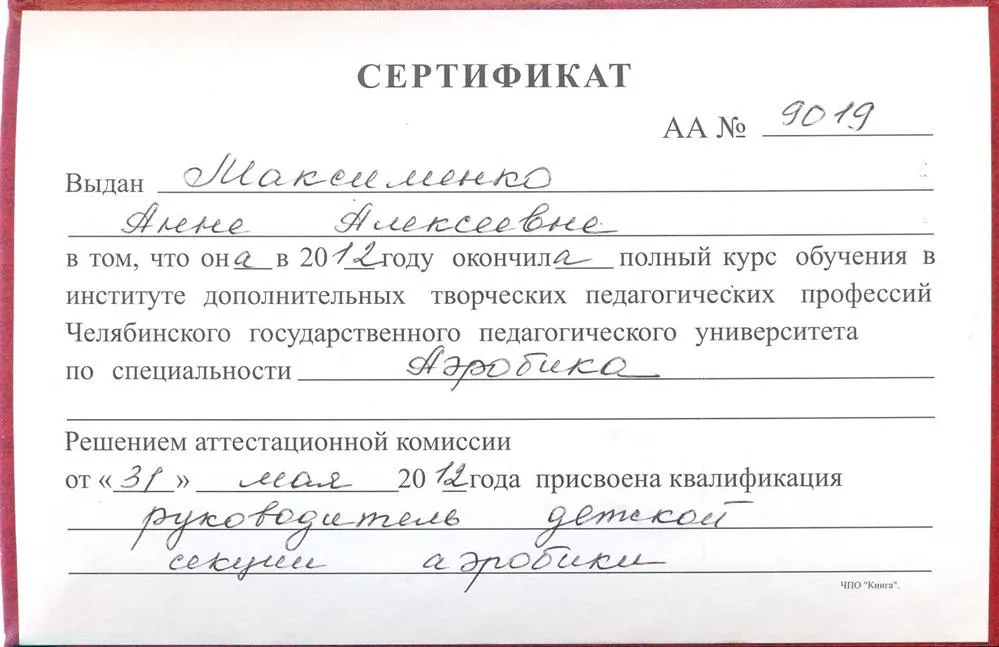 СЕРТИФИКАТ
АА № 9019
Выдан Максименко
Анне Алексеевне
в том, что она в 2012году окончила полный курс обучения в
институте дополнительных творческих педагогических профессий
Челябинского государственного педагогического университета
по специальности Аэробика
Решением аттестационной комиссии
от «31» мая 2012года присвоена квалификация
руководитель детской
секции аэробики
ЧПО "Книга".